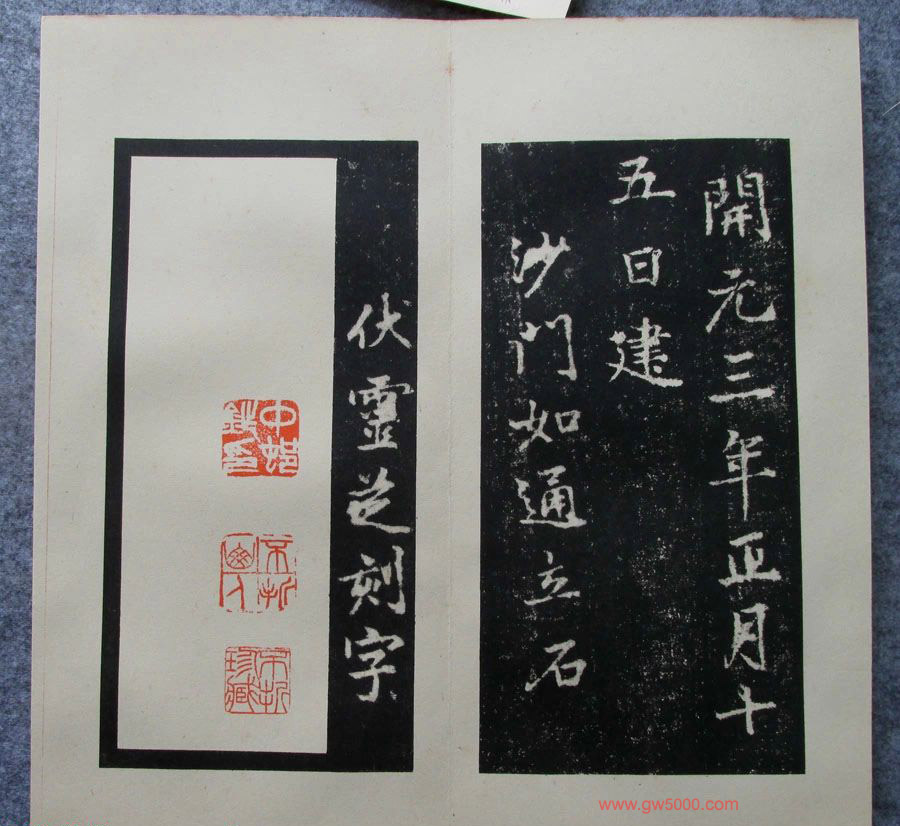 開元三年正月十
五日建
沙門如通立石
伏靈芝刻字
不折
珍藏
www.gw5000.com